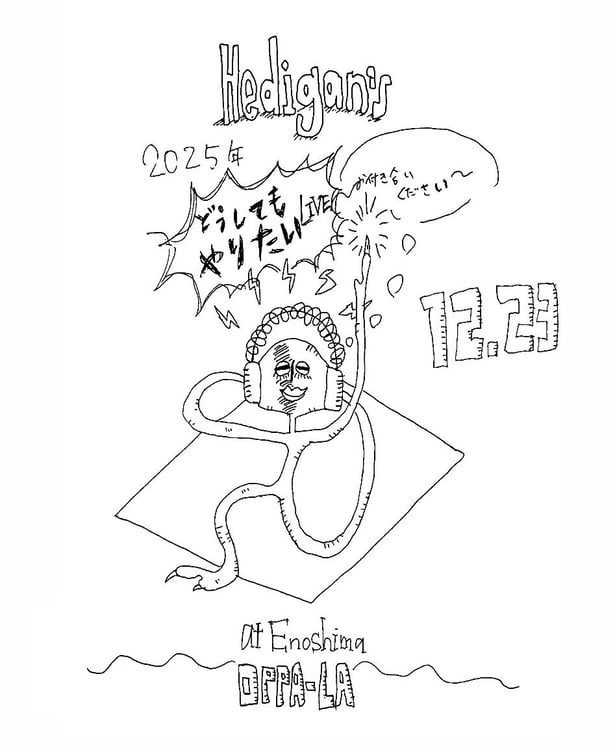 Hedigan's
2025年
どうしても
やりたい LIVE
お付き合い
ください〜
12.23
at Enoshima
OPPA-LA